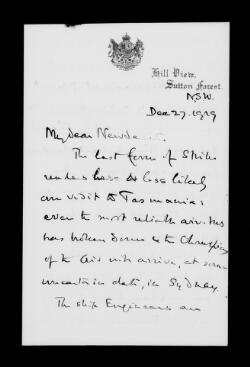 Hill View,
Sutton Forest.
NSW.
Dec 27. 1919
My Dear
The last form of Strike
renders less & less likely
our visit to Tasmania:
even the most reliable air-
has broken down & the Champions
of the Air will arrive, at some
uncertain date, in Sydney.
The ship Engineers are